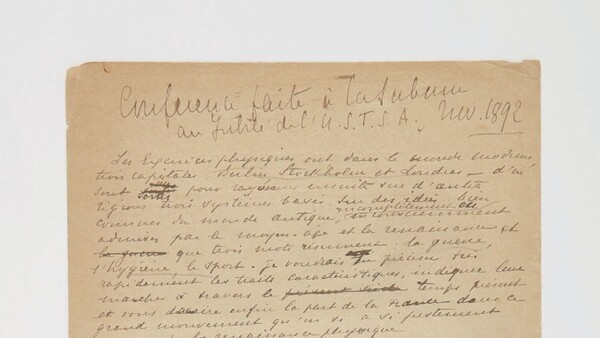 Conférence faite à la Sorbonne
au Jubilé de l'U.S.F.S.A. Nov. 1892
Les Exercices physiques ont dans le monde moderne
trois capitales: Berlin, Stockholm et Londres — d'où
sont sortis pour rayonner ensuite
trois systèmes basés sur des idées bien
connues du monde antique, inconsciemment
admises par le moyen-âge et la renaissance et
la guerre que trois mots résument: la guerre,
l'hygiène, le sport. Je voudrais préciser très
rapidement les traits caractéristiques, indiquer leur
marche à travers le présent siècle temps présent
et vous décrire enfin la part de la France dans ce
grand mouvement qu'on a si justement
la renaissance physique